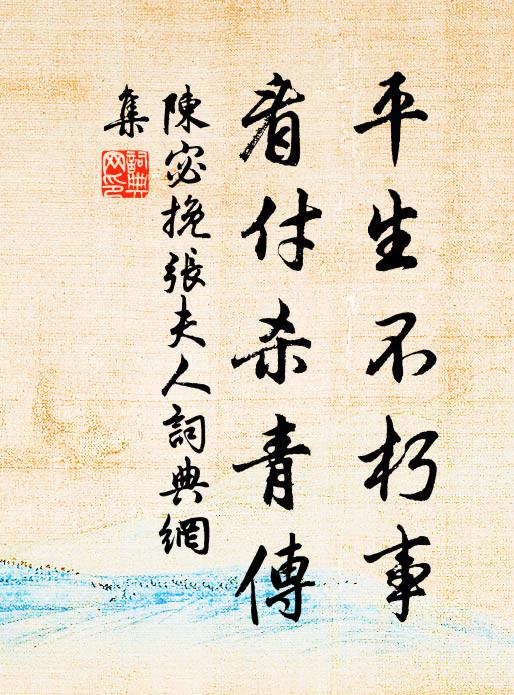 平生不朽事
看付杀青傳
陳宓挽張夫人詞典網
集
詞典
网印